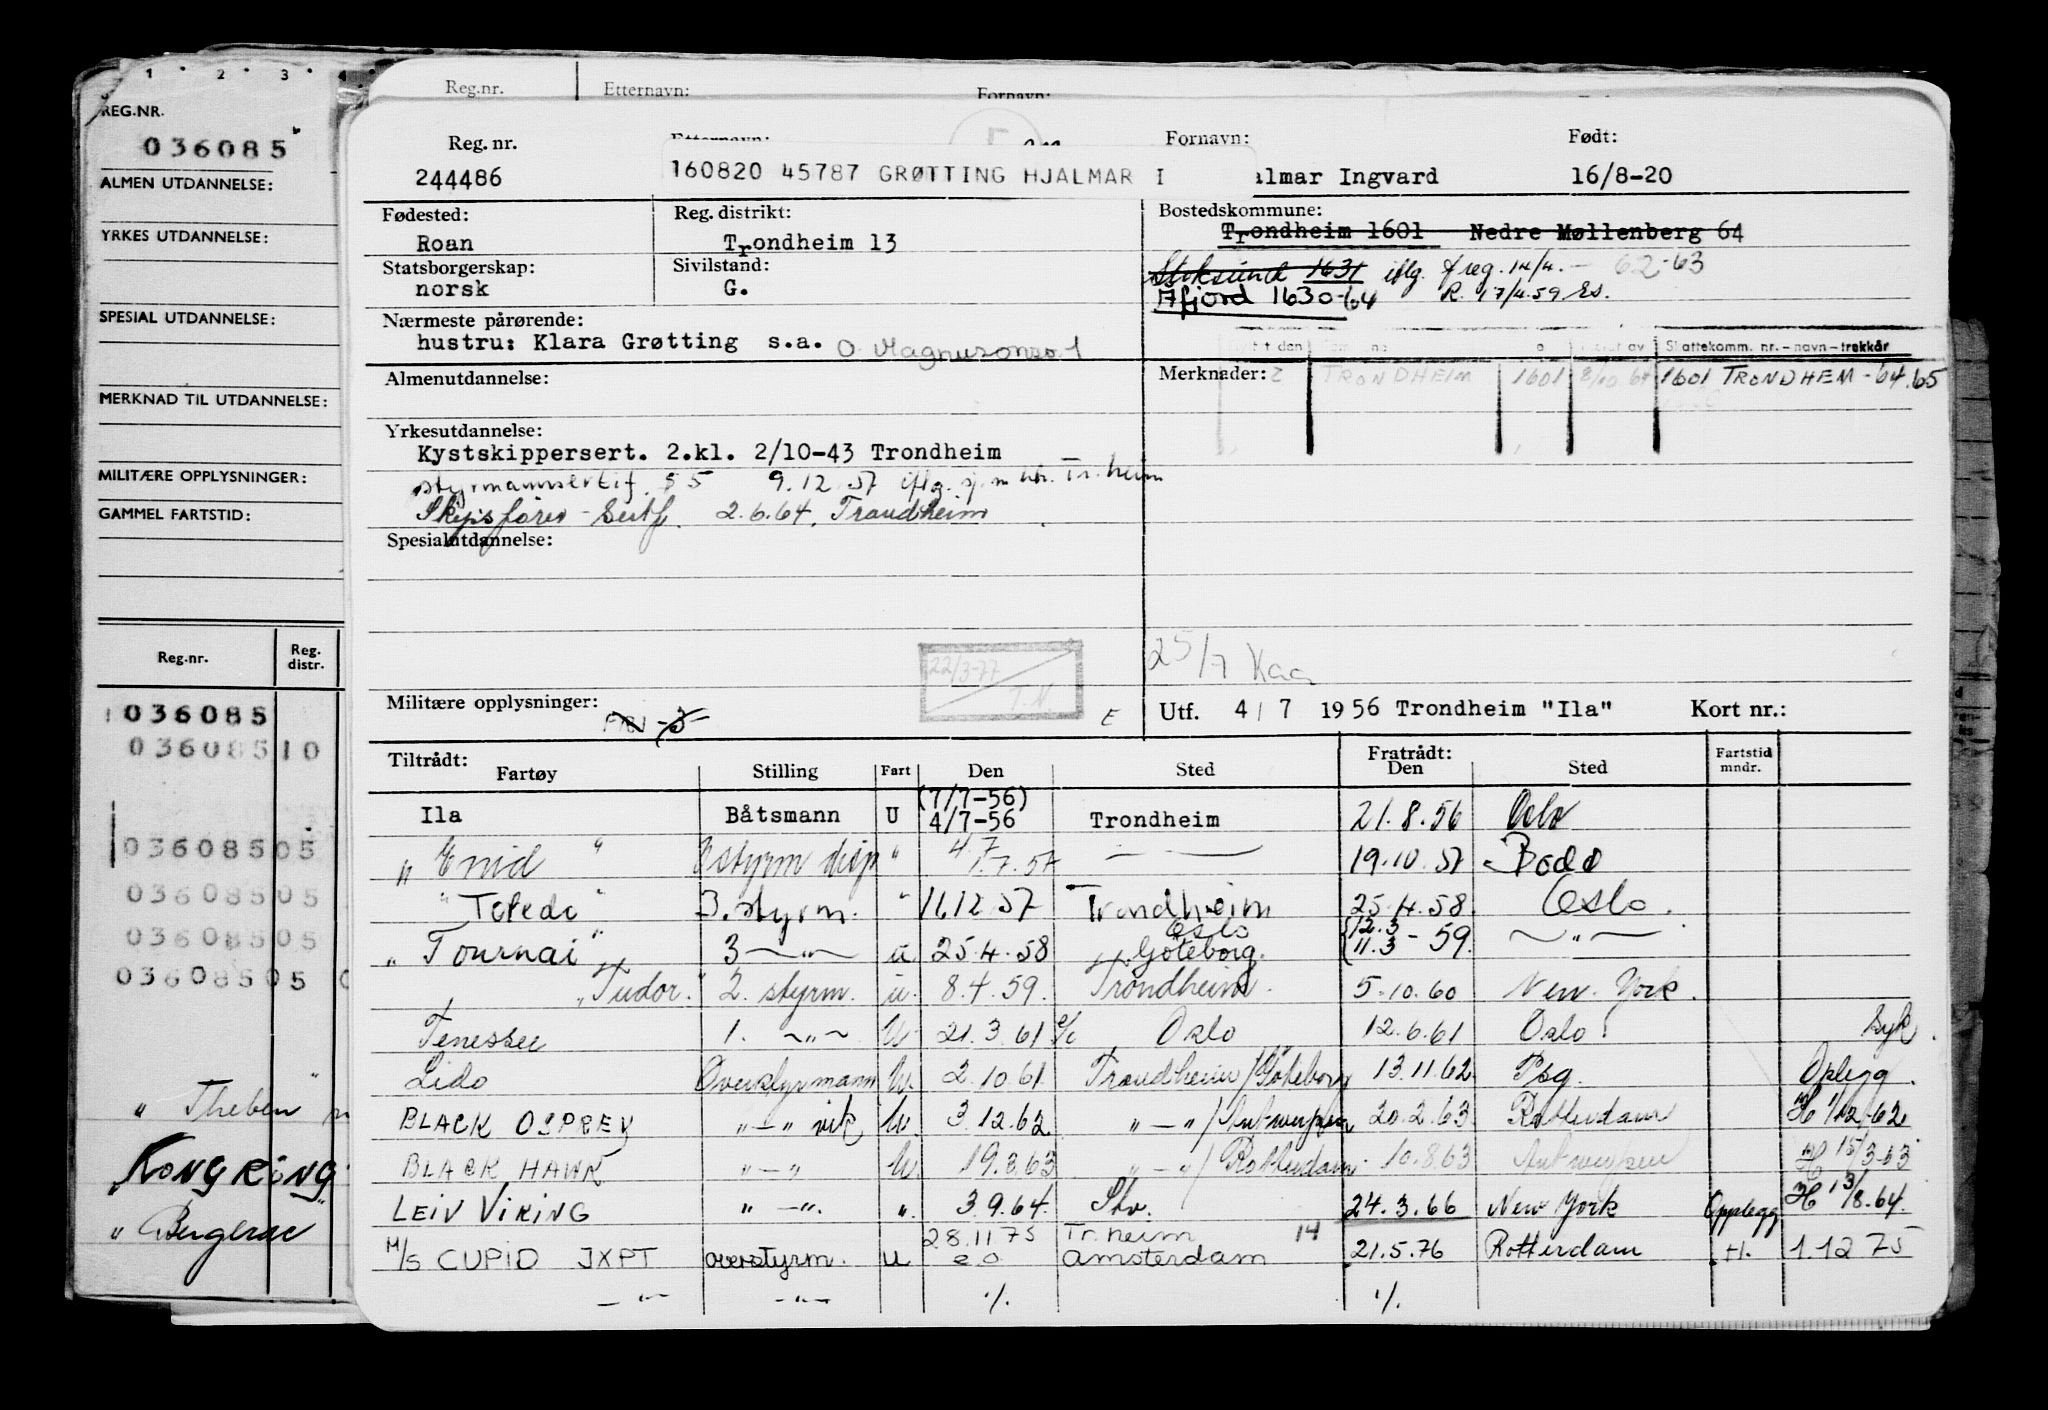 1 2 3 4
REG.NR.
036085
ALMEN UTDANNELSE:
YRKES UTDANNELSE:
SPESIAL UTDANNELSE:
MERKNAD TIL UTDANNELSE:
MILITÆRE OPPLYSNINGER:
GAMMEL FARTSTID:
Reg.nr. Reg. distr.
036085
036085 10
036085 05
036085 05
036085 05
036085 05
" Theben
"KONGRING"
" Bergerac
Reg.nr. Etternavn: Fornavn:
Reg. nr. Etternavn: Fornavn: Født:
244486 160820 45787 GRØTTING HJALMAR I almar Ingvard 16/8-20
Fødested: Reg. distrikt: Bostedskommune:
Roan Trondheim 13 Trondheim 1601 Nedre Møllenberg 64
Statsborgerskap: Sivilstand: Stoksund 1631 iflg. freg. 14/4. - 62-63
norsk G. Åfjord 1630-64 R. 17/4.59 Es.
Nærmeste pårørende:
hustru: Klara Grøtting s.a. O. Magnusonsv 1
Skattekomm. nr.-navn-trekkår
Almenutdannelse: Merknader: TRONDHEIM 1601 8/10 64 1601 TRONDHEM - 64.65
Yrkesutdannelse:
Kystskippersert. 2.kl. 2/10-43 Trondheim
Styrmannsertif. § 5 9.12.57 iflg. sj.m.ktr. Tr.heim
Skipsfører-Sertf. 2.6.64. Trondheim
Spesialutdannelse:
22/3-77
T.N.
25/7 Kaa
Militære opplysninger: E Utf. 4/7 1956 Trondheim "Ila" Kort nr.:
Tiltrådt: Fratrådt:
Fartøy Stilling Fart Den Sted Den Sted Fartstid mndr.
(7/7-56)
Ila Båtsmann U 4/7-56 Trondheim 21.8.56 Oslo
" Enid " styrm disp " 4.7 1.7.57 — — 19.10.57 Bodø
" Toledo " 3. styrm. " 11.12.57 Trondheim 25.4.58. Oslo.
" Tournai " 3 —"— u 25.4.58 Oslo Göteborg. {12.3 11.3 - 59. —"—
"Tudor." 2. styrm. u. 8.4.59. Trondheim. 5.10.60 New. York.
Tenessee 1. —"— U 21.3.61 Oslo 12.6.61 Oslo syk.
Lido Overstyrmann U. 2.10.61. Trondheim/Göteborg 13.11.62. Psg. Oplegg.
BLACK OSPREY "—" vik U. 3.12.62 "—"/Antwerpen 20.2.63 Rotterdam H 1/12-62
BLACK HAWK "—" U. 19.3.63 "—"/Rotterdam. 10.8.63 Antwerpen H 15/3-63
LEIV VIKING "—". ". 3.9.64. Shv. 24.3.66 New York Opplegg H 13/8.64.
28.11.75 Tr.heim 14
M/S CUPID JXPT overstyrm. U e.o. Amsterdam 21.5.76 Rotterdam H. 1.12 75
—"— —"— ./. ./.